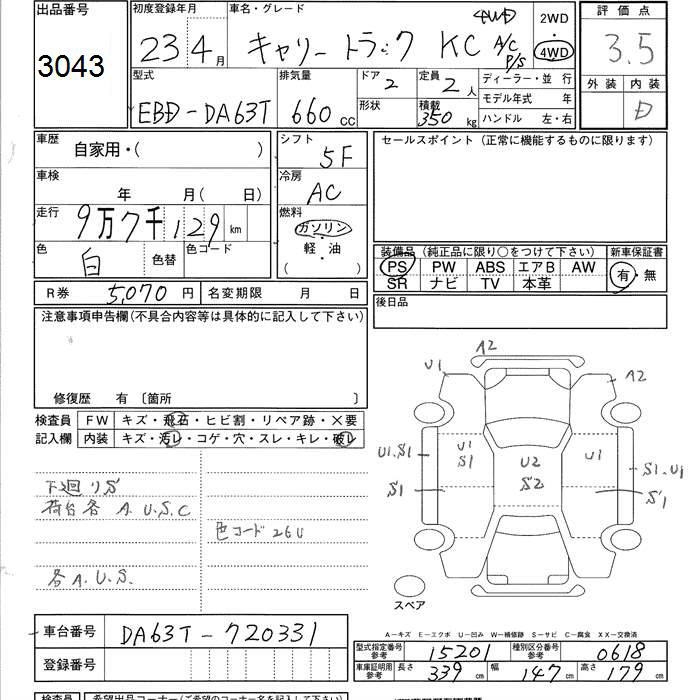 出品番号
3043
初度登録年月
23年 4月
車名・グレード
キャリー トラック KC 4WD A/C P/S
2WD
4WD
評価点
3.5
外装 内装
D
型式
EBD-DA63T
排気量
660 cc
ドア
2
形状
定員
2人
積載
350 kg
ディーラー・並 行
モデル年式 年
ハンドル 左・右
車歴
自家用・( )
シフト
5F
セールスポイント (正常に機能するものに限ります)
車検
年 月( 日)
冷房
AC
走行
9万7千129 km
燃料
ガソリン
軽・油
( )
色
白
色替
色コード
装備品 (純正品に限り○をつけて下さい)
PS PW ABS エアB AW
SR ナビ TV 本革
新車保証書
有・無
R券 5,070 円
名変期限 月 日
後日品
注意事項申告欄(不具合内容等は具体的に記入して下さい)
修復歴 有 〔箇所 〕
検査員
記入欄
FW キズ・飛石・ヒビ割・リペア跡・✕要
内装 キズ・汚レ・コゲ・穴・スレ・キレ・破レ
下廻りS
荷台各 A.U.S.C
色コード 26U
各A.U.S.
A2
U1
A2
U1.S1
U1
S1
U2
S2
U1
S1.U1
S1
S1
スペア
A−キズ E−エクボ U−凹み W−補修跡 S−サビ C−腐食 XX−交換済
車台番号
DA63T-720331
登録番号
型式指定番号
参考
15201
種別区分番号
参考
0618
車庫証明用
参考
長さ 339 cm
幅 147 cm
高さ 179 cm